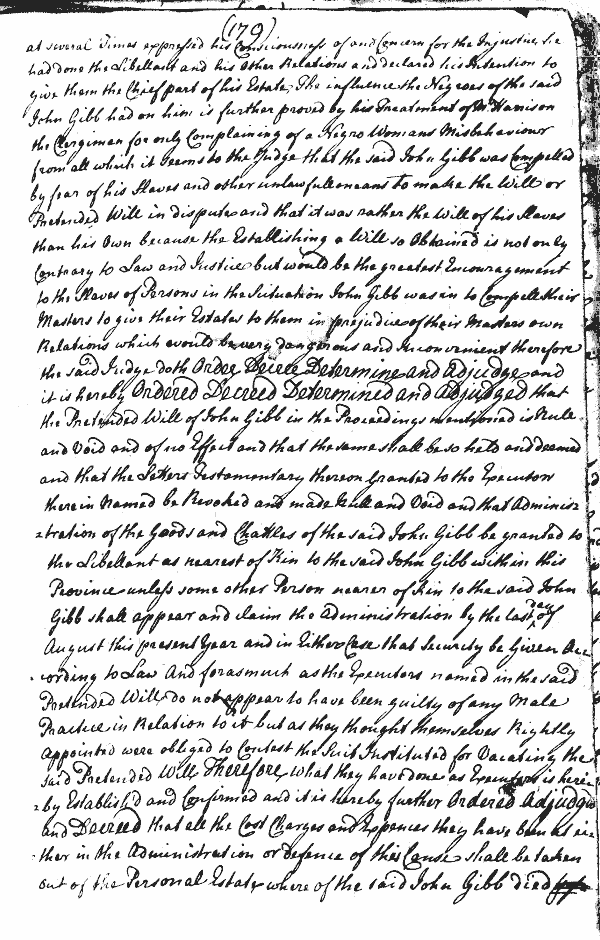 (179)
at several Times expressed his Consciousness of and Concern for the Injustice he
had done the Libellant and his other Relations and declared his Intention to
give them the Chief part of his Estate, The influence the Negroes of the said
John Gibb had on him is further proved by his Treatment of Mr Harrison
the Clergiman for only Complaining of a Negro Womans Misbehaviour
from all which it seems to the Judge that the said John Gibb was Compelled
by fear of his Slaves and other unlawfull means to make the Will or
Pretended Will in dispute and that it was rather the Will of his Slaves
than his Own because the Establishing a Will so Obtained is not only
Contrary to Law and Justice but would be the greatest Encouragement
to the Slaves of Persons in the Situation John Gibb was in to Compell their
Masters to give their Estates to them in prejudice of their Masters own
Relations which would be very dangerous and Inconvenient therefore
the said Judge doth Order Decree Determine and Adjudge and
it is hereby Ordered Decreed Determined and Adjudged that
the Pretended Will of John Gibb in the Proceedings mentioned is Null
and Void and of no Effect and that the same shall be so held and deemed
and that the Letters Testamentary thereon Granted to the Executors
therein Named be Revoked and made Null and Void and that Adminis=
=tration of the Goods and Chattles of the said John Gibb be granted to
the Libellant as nearest of Kin to the said John Gibb within this
Province unless some other Person nearer of Kin to the said John
Gibb shall appear and claim the Administration by the last day of
August this present Year and in Either Case that Security be Given Acc
ording to Law And forasmuch as the Executors named in the said
Pretended Will do not appear to have been guilty of any Male
Practice in Relation to it but as they thought themselves Rightly
appointed were obliged to Contest the Suit Instituted for Vacating the
said Pretended Will Therefore what they have done as Executors is here
=by Establish'd and Confirmed and it is hereby further Ordered Adjudged
and Decreed that all the Cost Charges and Expences they have been at ei=
ther in the Administration or Defence of this Cause shall be taken
out of the Personal Estate where of the said John Gibb died